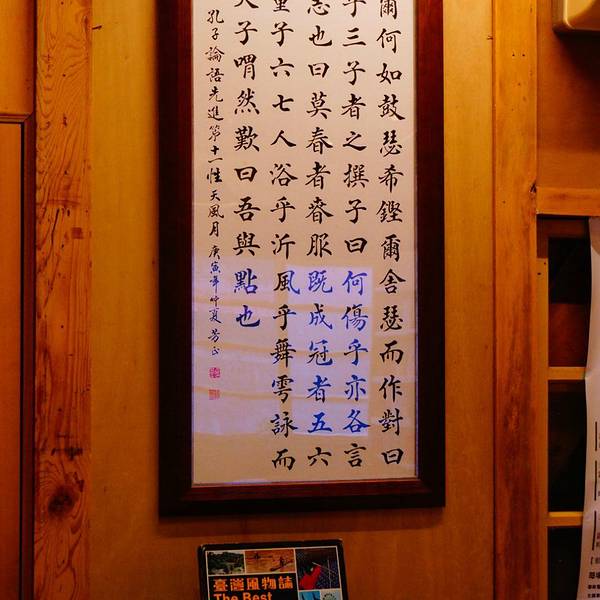 爾何如鼓瑟希鏗爾舍瑟而作對曰
乎三子者之撰子曰何傷乎亦各言
志也曰莫春者春服既成冠者五六
童子六七人浴乎沂風乎舞雩詠而
夫子喟然歎曰吾與點也
孔子論語先進第十一性天風月 庚寅年仲夏 芳正
臺灣風物誌
The Best